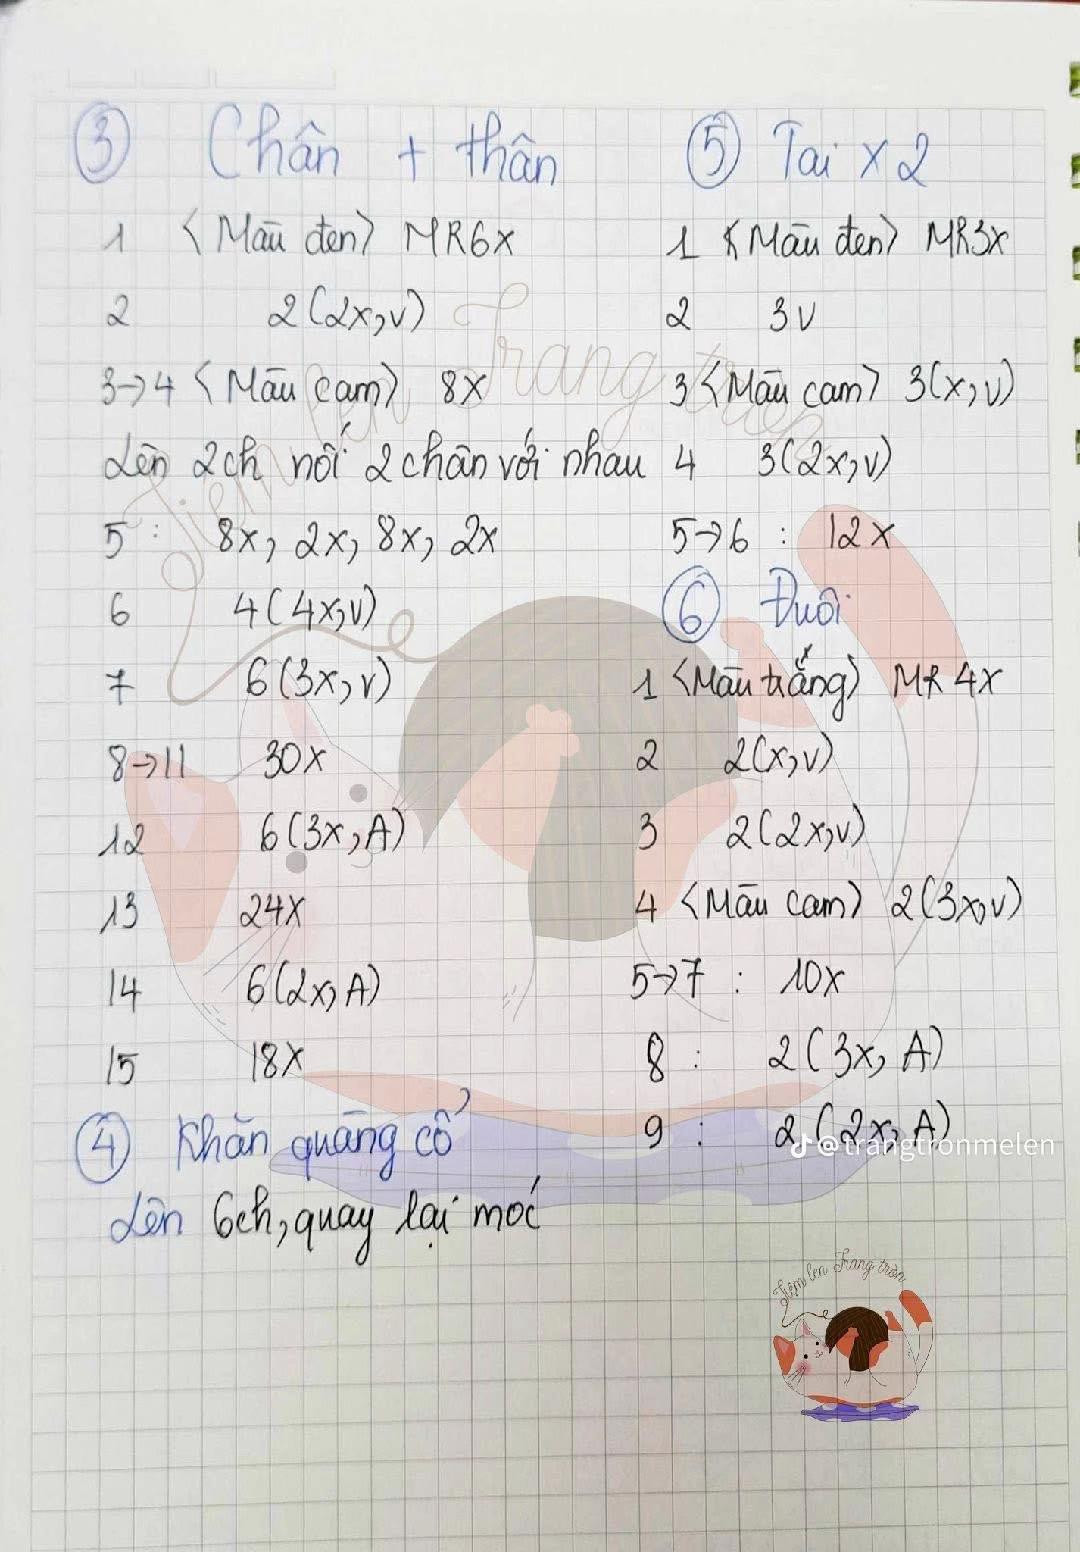 ③ Chân + thân
1 <Màu đen> MR6x
2 2(2x,v)
3→4 <Màu cam> 8x
Lên 2ch nối 2 chân với nhau
5 : 8x, 2x, 8x, 2x
6 4(4x,v)
7 6(3x,v)
8→11 30x
12 6(3x,A)
13 24x
14 6(2x,A)
15 18x
④ Khăn quàng cổ
Lên 6ch, quay lại móc
⑤ Tai x 2
1 <Màu đen> MR3x
2 3v
3 <Màu cam> 3(x,v)
4 3(2x,v)
5→6 : 12x
⑥ Đuôi
1 <Màu trắng> MR 4x
2 2(x,v)
3 2(2x,v)
4 <Màu cam> 2(3x,v)
5→7 : 10x
8 : 2(3x, A)
9 : 2(2x, A)
@trangtronmelen
Tiệm len Trang tròn
Tiệm len Trang tròn